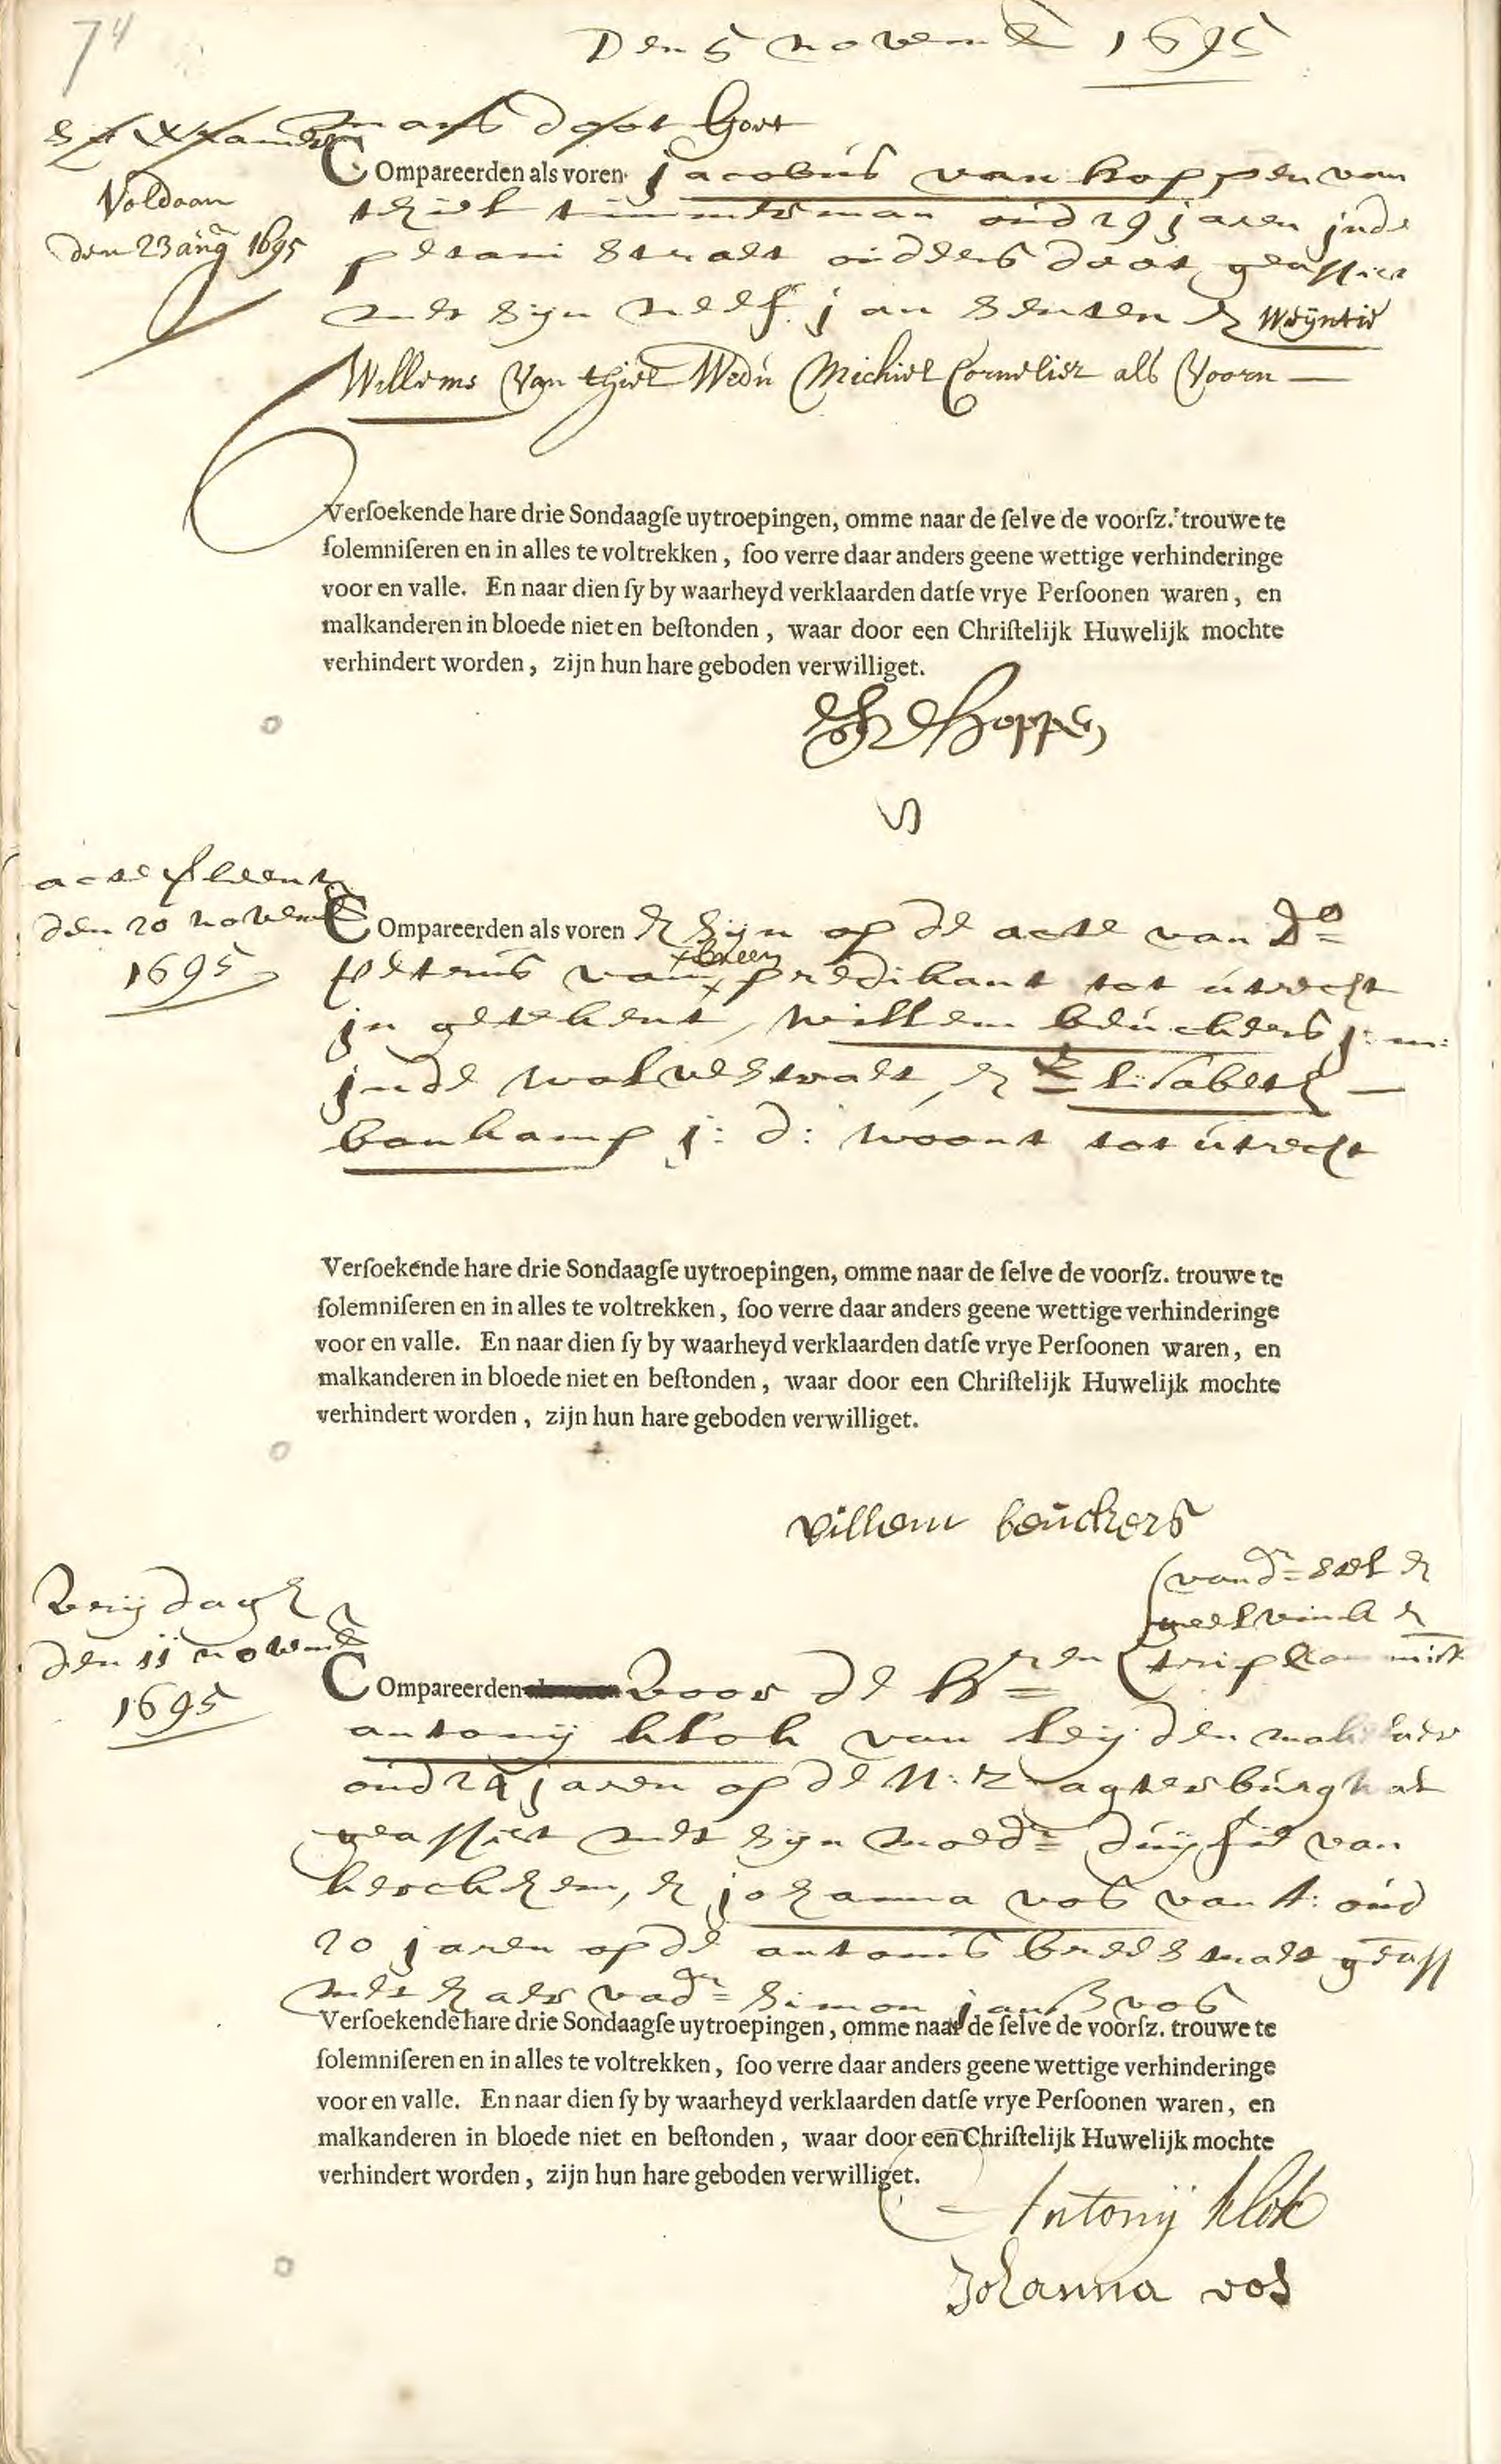 74
Den 5 novemb 1695
mans doot hoort
Voldaan
den 23 aug 1695
COmpareerden als voren jacobus van hoppen van
thiel timmerman oud 29 jaren jnde
ouders doot geassist
met sijn neef jan & Weijntie
Willems Van thiel Wedu Michiel Cornelisz als Voorn
Verſoekende hare drie Sondaagſe uytroepingen, omme naar de ſelve de voorſz. trouwe te
ſolemniſeren en in alles te voltrekken, ſoo verre daar anders geene wettige verhinderinge
voor en valle. En naar dien ſy by waarheyd verklaarden datſe vrye Perſoonen waren, en
malkanderen in bloede niet en beſtonden, waar door een Chriſtelijk Huwelijk mochte
verhindert worden, zijn hun hare geboden verwilliget.
acte verleent
den 20 novemb
1695
COmpareerden als voren & sijn op de acte van Do
petrus van breen predikant tot utrecht
jn getekent, willem beuckers j: m:
jnde wolvestraet, & Elisabeth
bonkamp j: d: woont tot utrecht
Verſoekende hare drie Sondaagſe uytroepingen, omme naar de ſelve de voorſz. trouwe te
ſolemniſeren en in alles te voltrekken, ſoo verre daar anders geene wettige verhinderinge
voor en valle. En naar dien ſy by waarheyd verklaarden datſe vrye Perſoonen waren, en
malkanderen in bloede niet en beſtonden, waar door een Chriſtelijk Huwelijk mochte
verhindert worden, zijn hun hare geboden verwilliget.
willem beuckers
Vrijdagh
den 11 novemb
1695
geelvinck &
trip
COmpareerden Voor de Hren
antonij klok van leijden makelaer
oud 24 jaren op de N: Z agterburghwal
geassist met sijn moedr duijfie van
& johanna vos van A: oud
20 jaren op de antonis breestraet geass
met haer vadr Simon jansz vos
Verſoekende hare drie Sondaagſe uytroepingen, omme naar de ſelve de voorſz. trouwe te
ſolemniſeren en in alles te voltrekken, ſoo verre daar anders geene wettige verhinderinge
voor en valle. En naar dien ſy by waarheyd verklaarden datſe vrye Perſoonen waren, en
malkanderen in bloede niet en beſtonden, waar door een Chriſtelijk Huwelijk mochte
verhindert worden, zijn hun hare geboden verwilliget.
Antonij klok
Johanna vos